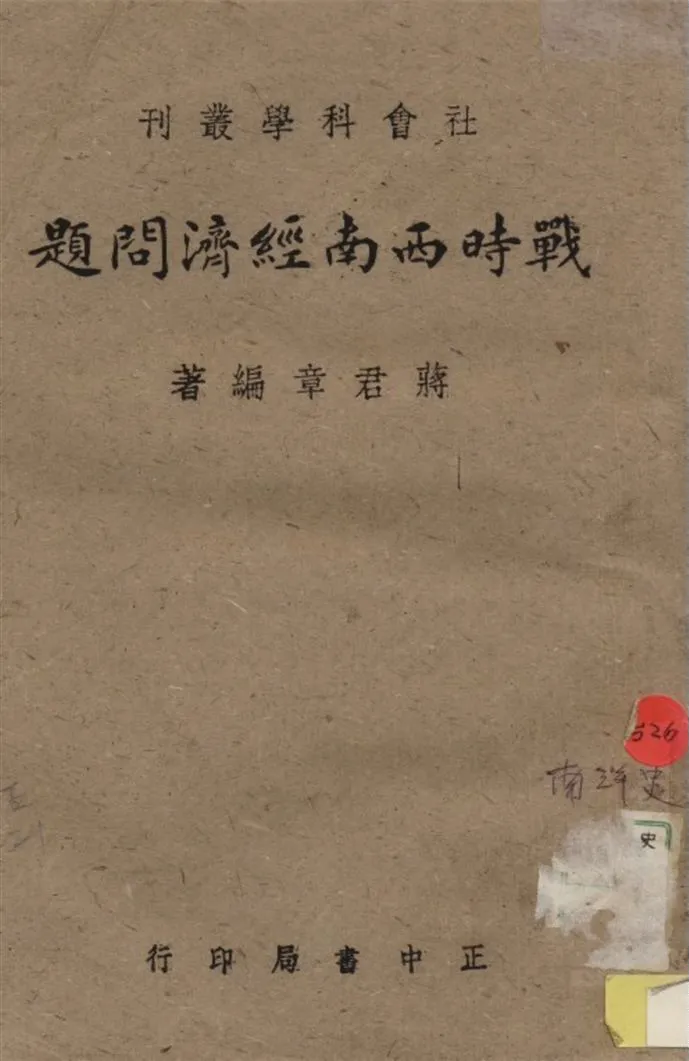 社會科學叢刊
戰時西南經濟問題
蔣君章編著
526
南洋史
史
正中書局印行